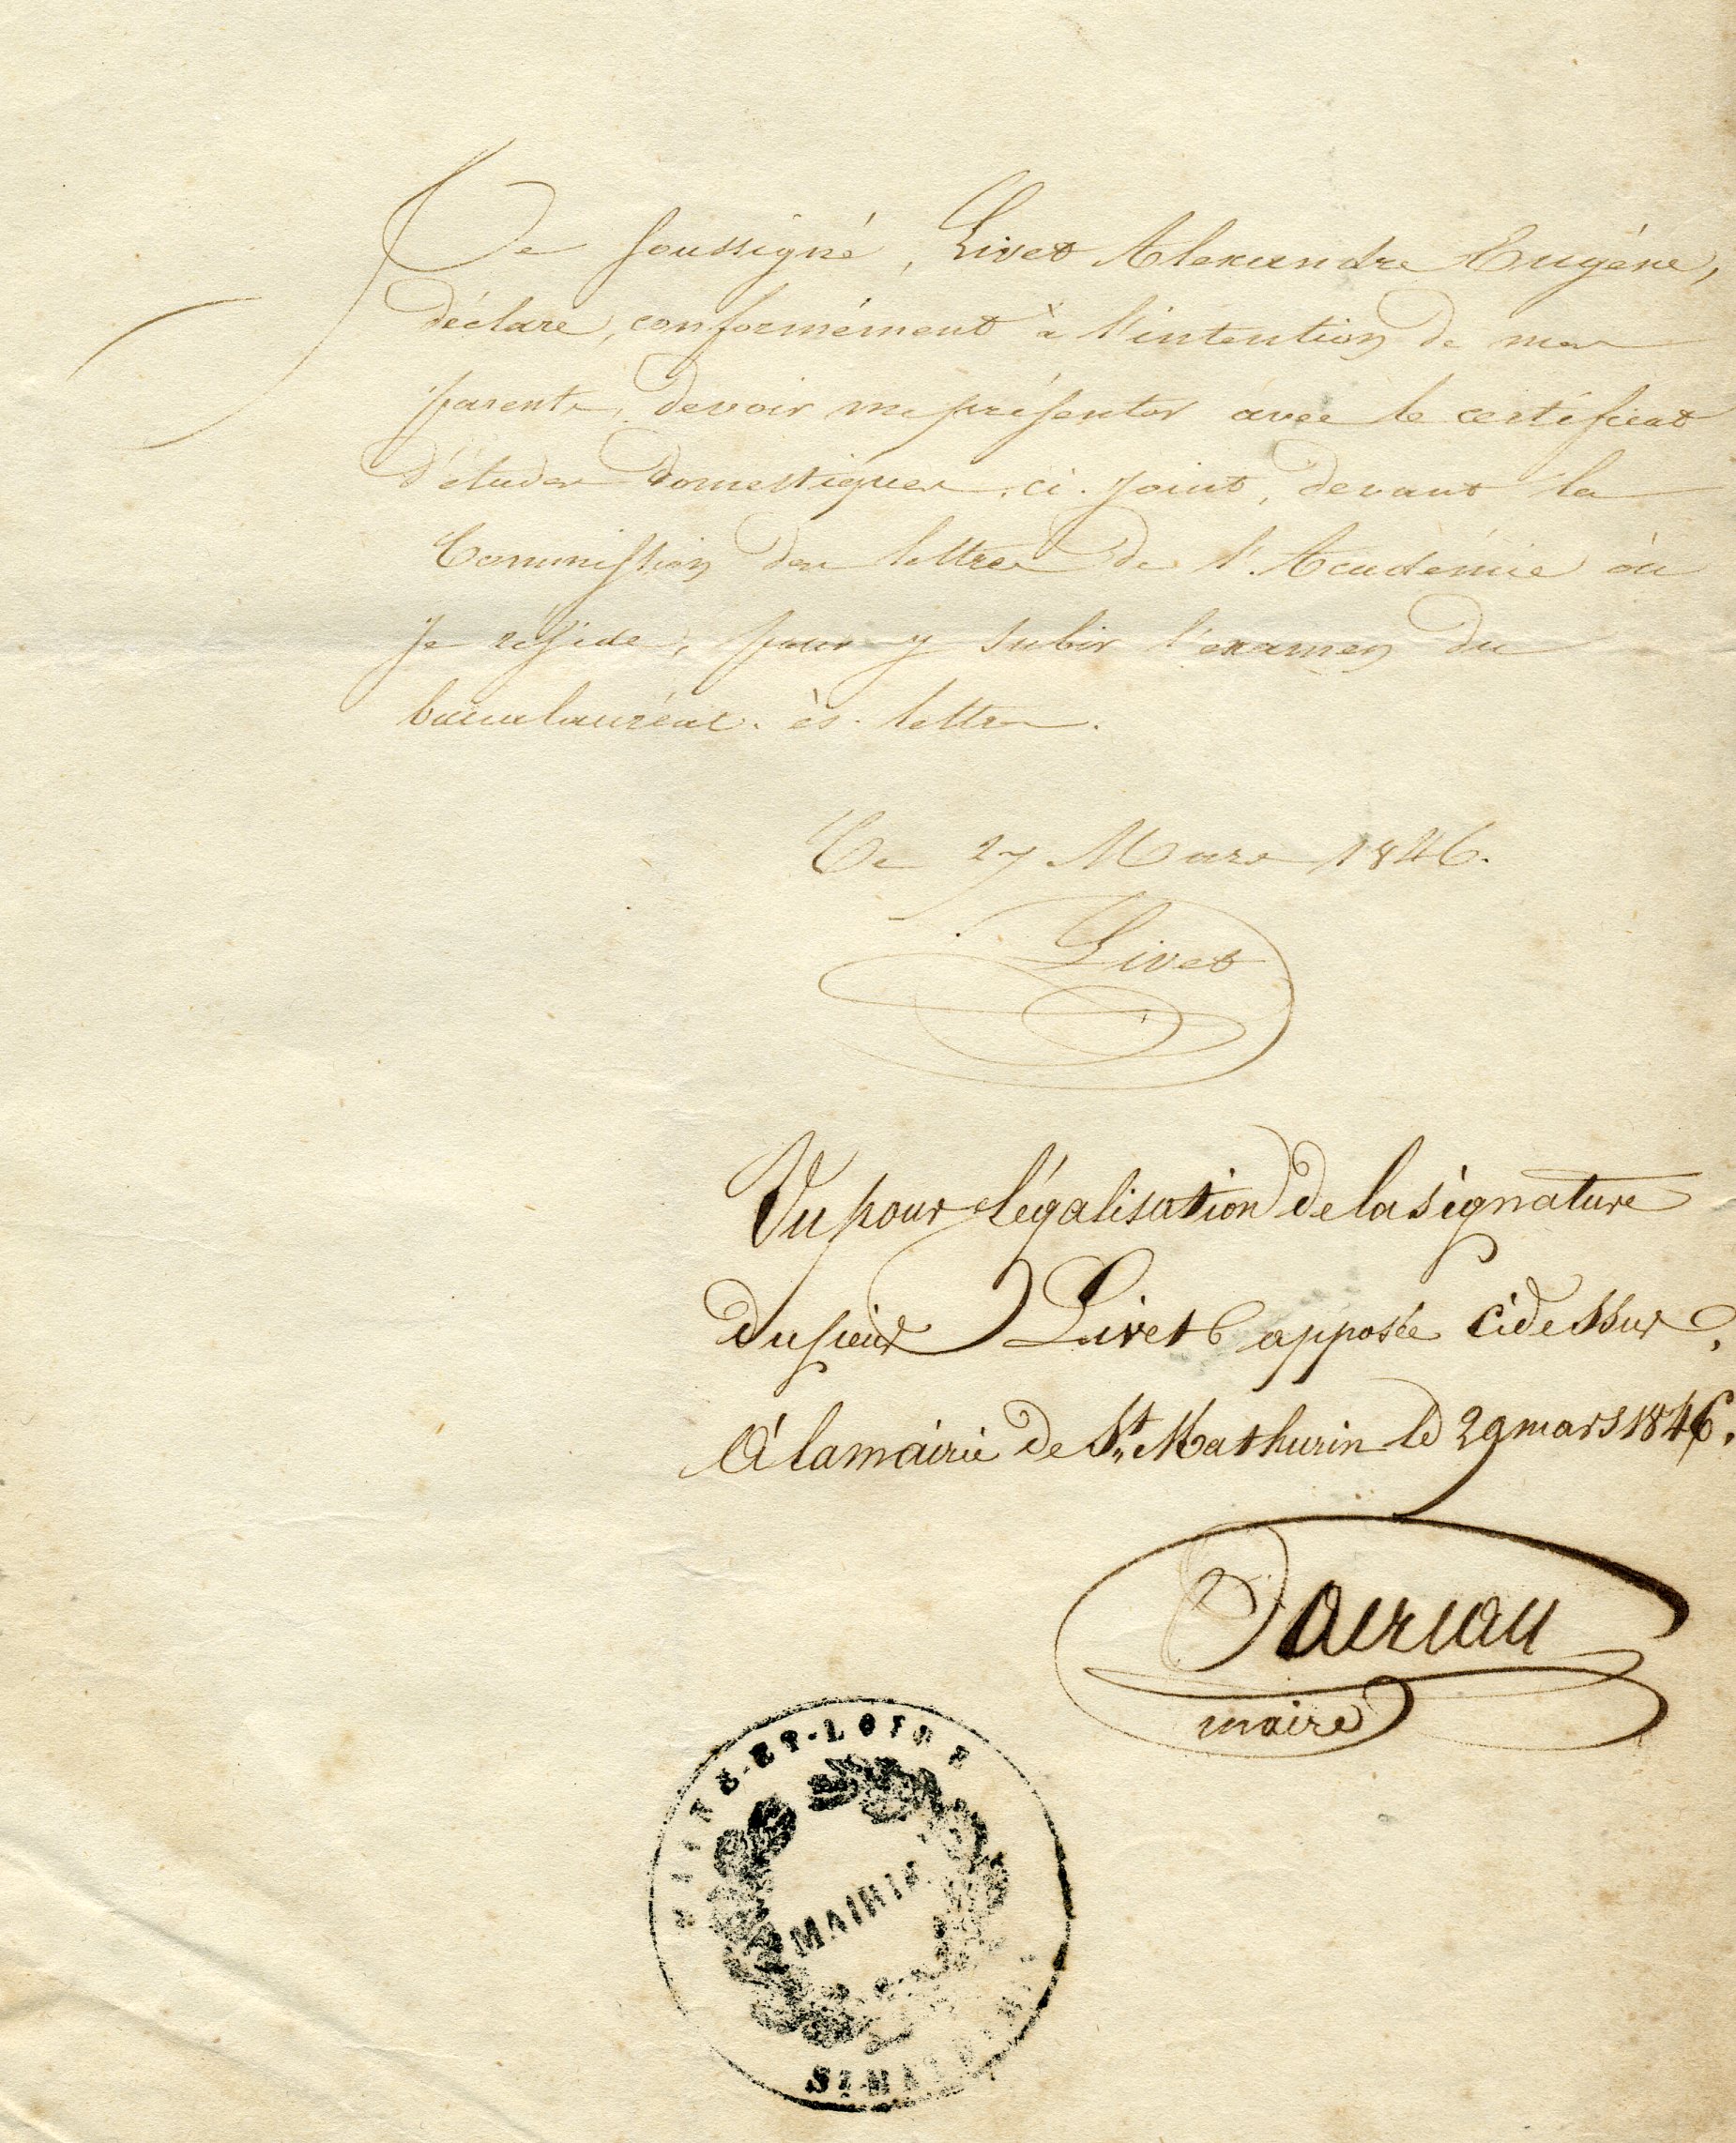 Je soussigné, Livet Alexandre Eugène,
déclare, conformément à l'intention de mes
parents, devoir me présenter avec le certificat
d'études domestiques, ci-joint, devant la
Commission des lettres de l'Académie où
je réside, pour y subir l'examen du
baccalauréat-ès-lettres.
Ce 27 Mars 1846.
Livet
Vu pour légalisation de la signature
du sieur Livet apposée ci dessus,
A la mairie de St Mathurin le 29 mars 1846.
maire
MAINE-ET-LOIRE
MAIRIE
ST MATHURIN